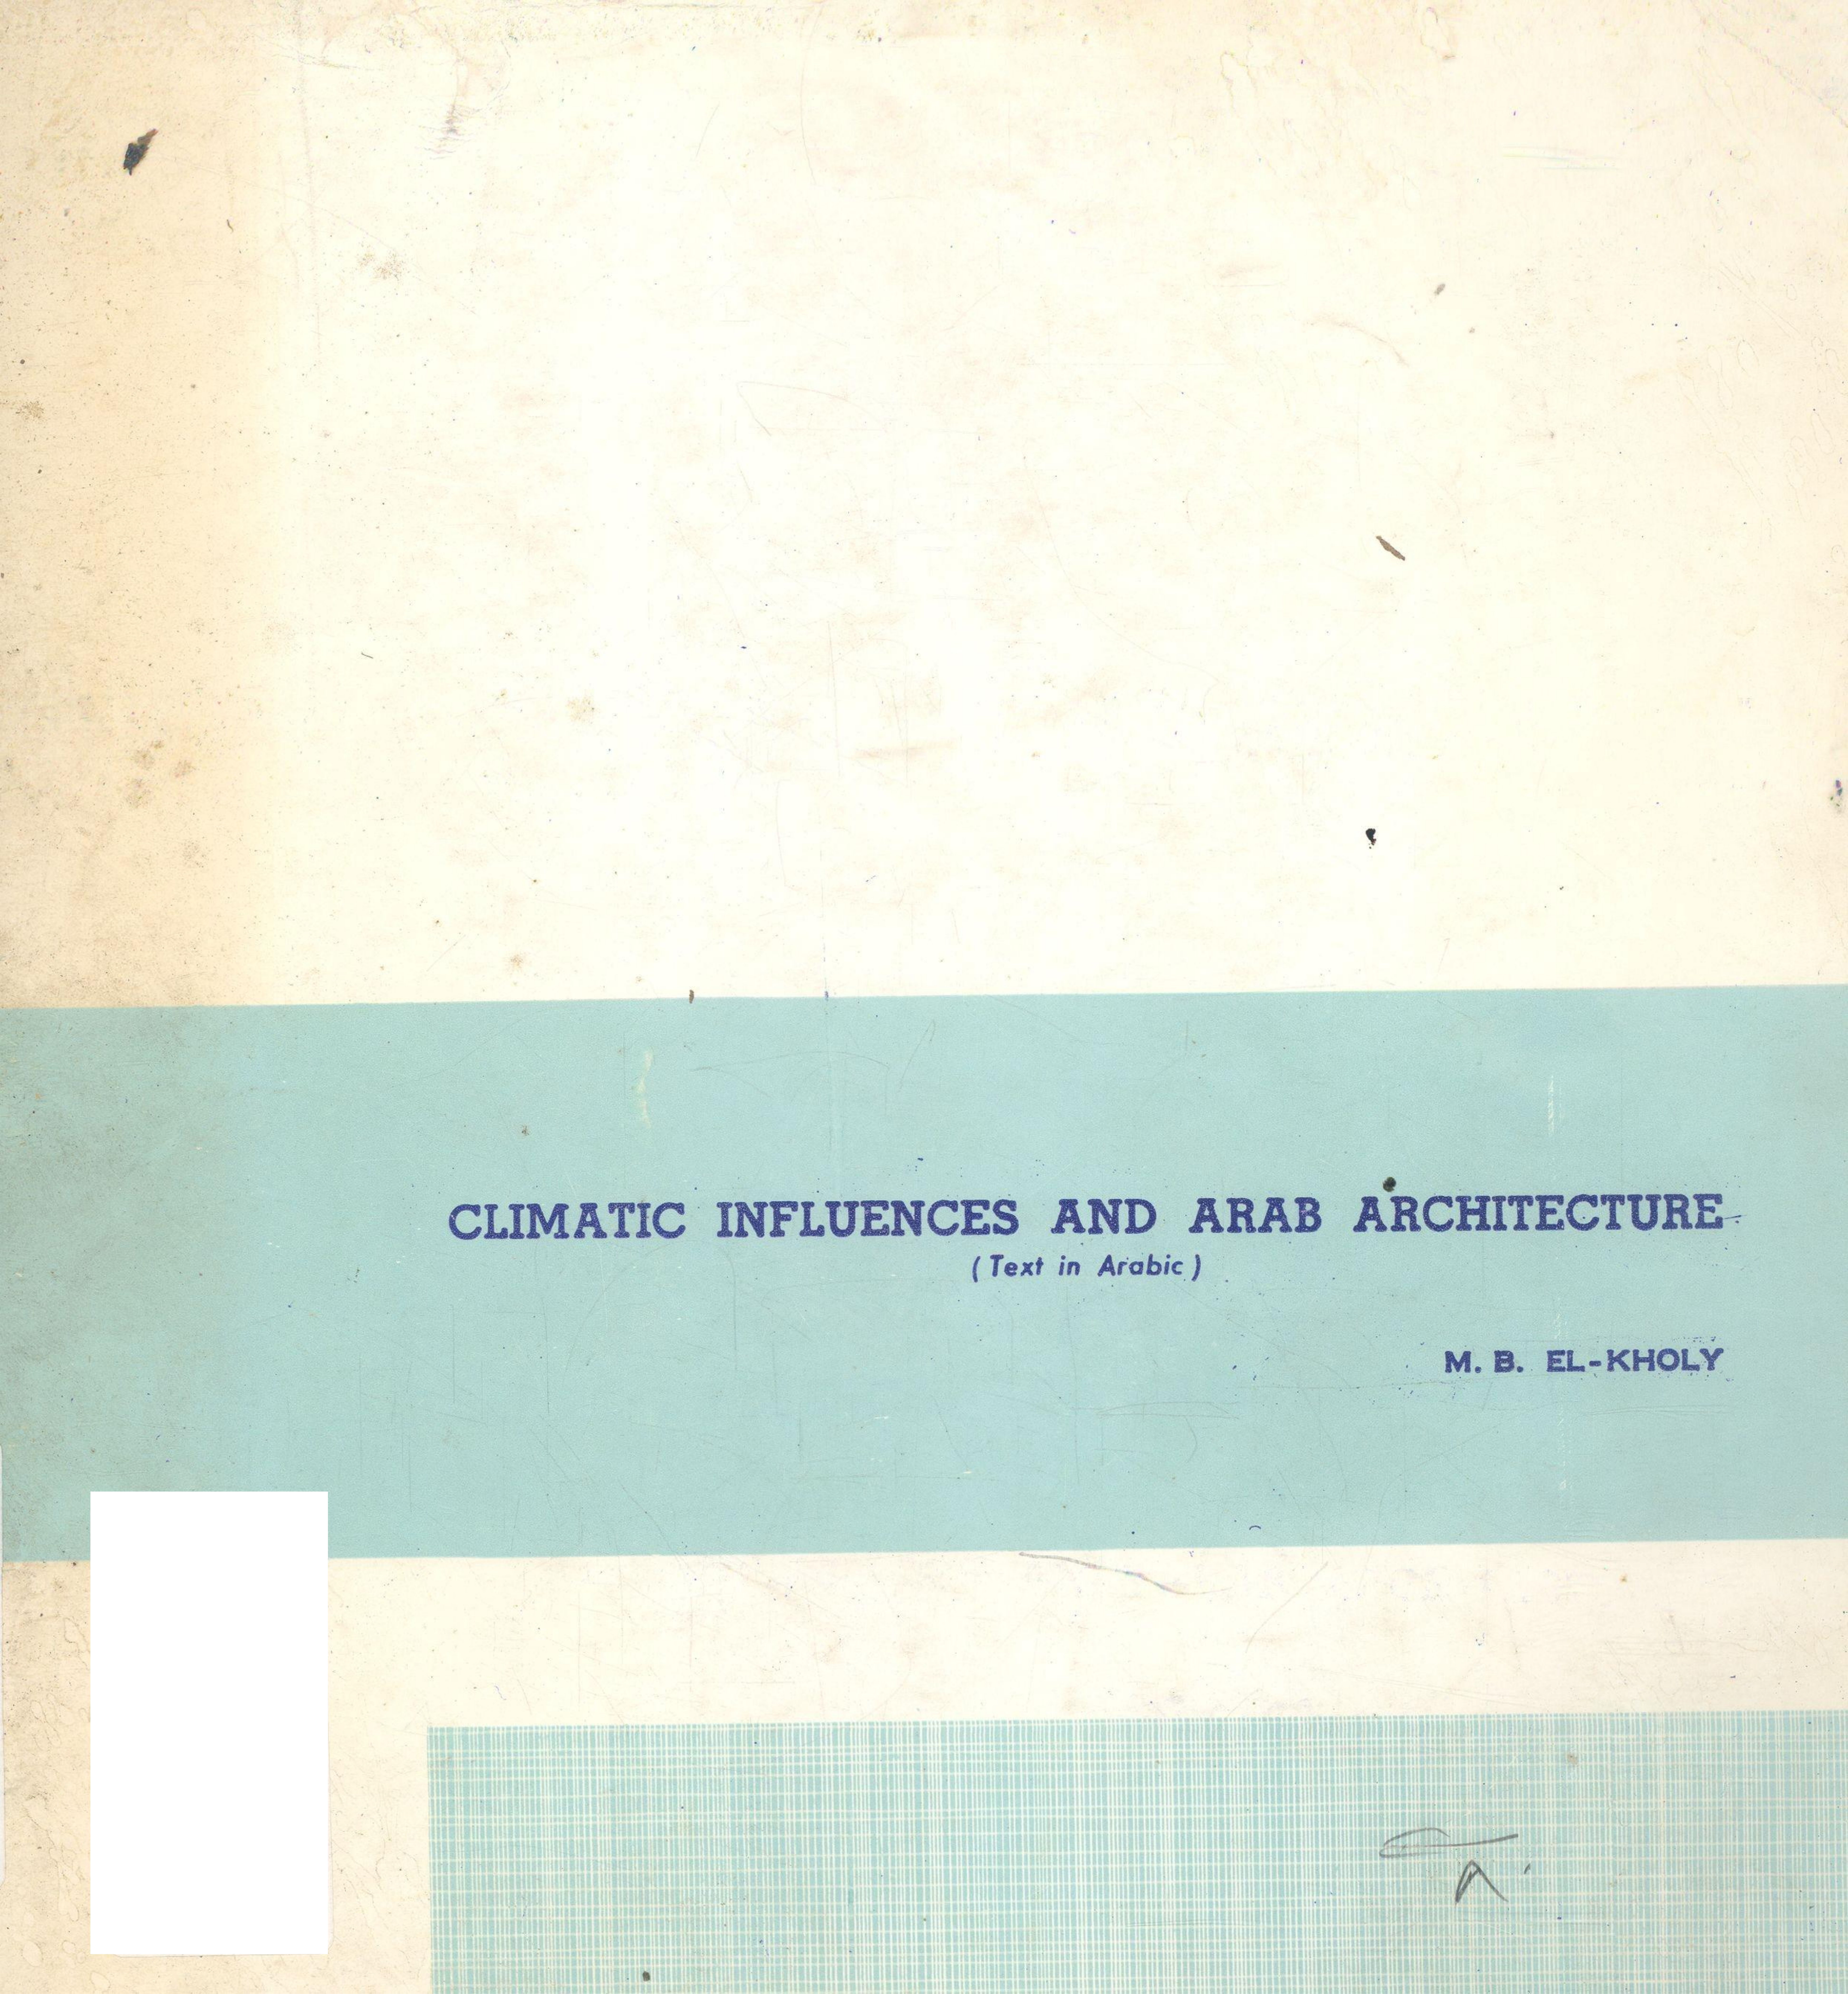 CLIMATIC INFLUENCES AND ARAB ARCHITECTURE
( Text in Arabic )
M. B. EL-KHOLY